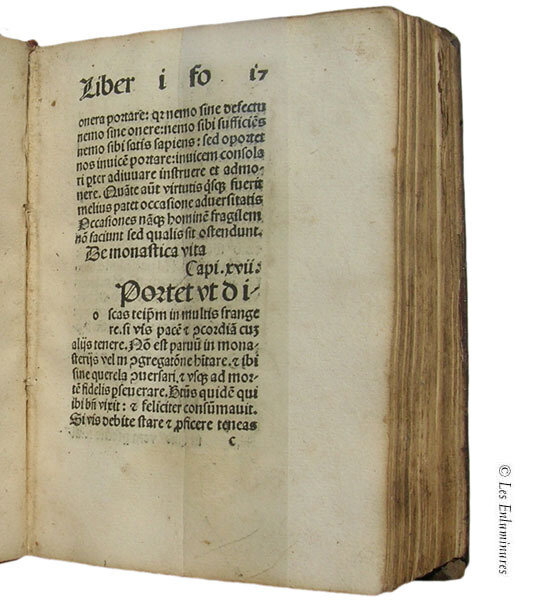 Liber i fo 17
onera portare: qr nemo sine defectu
nemo sine onere: nemo sibi sufficiẽs
nemo sibi satis sapiens: sed oportet
nos inuicẽ portare: inuicem consola
ri pter adiuuare instruere et admo-
nere. Quãte aũt virtutis q̃sq̃ fuerit
melius patet occasione aduersitatis
Occasiones nãq̃ hominẽ fragilem
nõ faciunt sed qualis sit ostendunt.
De monastica vita
Capi. xvii.
Portet vt di-
o scas teip̃m in multis frange
re. si vis pacẽ ⁊ ꝓcordiã cuz
alijs tenere. Nõ est paruũ in mona-
sterijs vel in ꝓgregatõne hĩtare. ⁊ ibi
sine querela ꝓuersari. ⁊ vsq̃ ad mor-
tẽ fidelis pseuerare. Btũs quidẽ qui
ibi bñ vixit: ⁊ feliciter consũmauit.
Si vis debite stare ⁊ ꝓficere teneas
c
© Les Enluminures